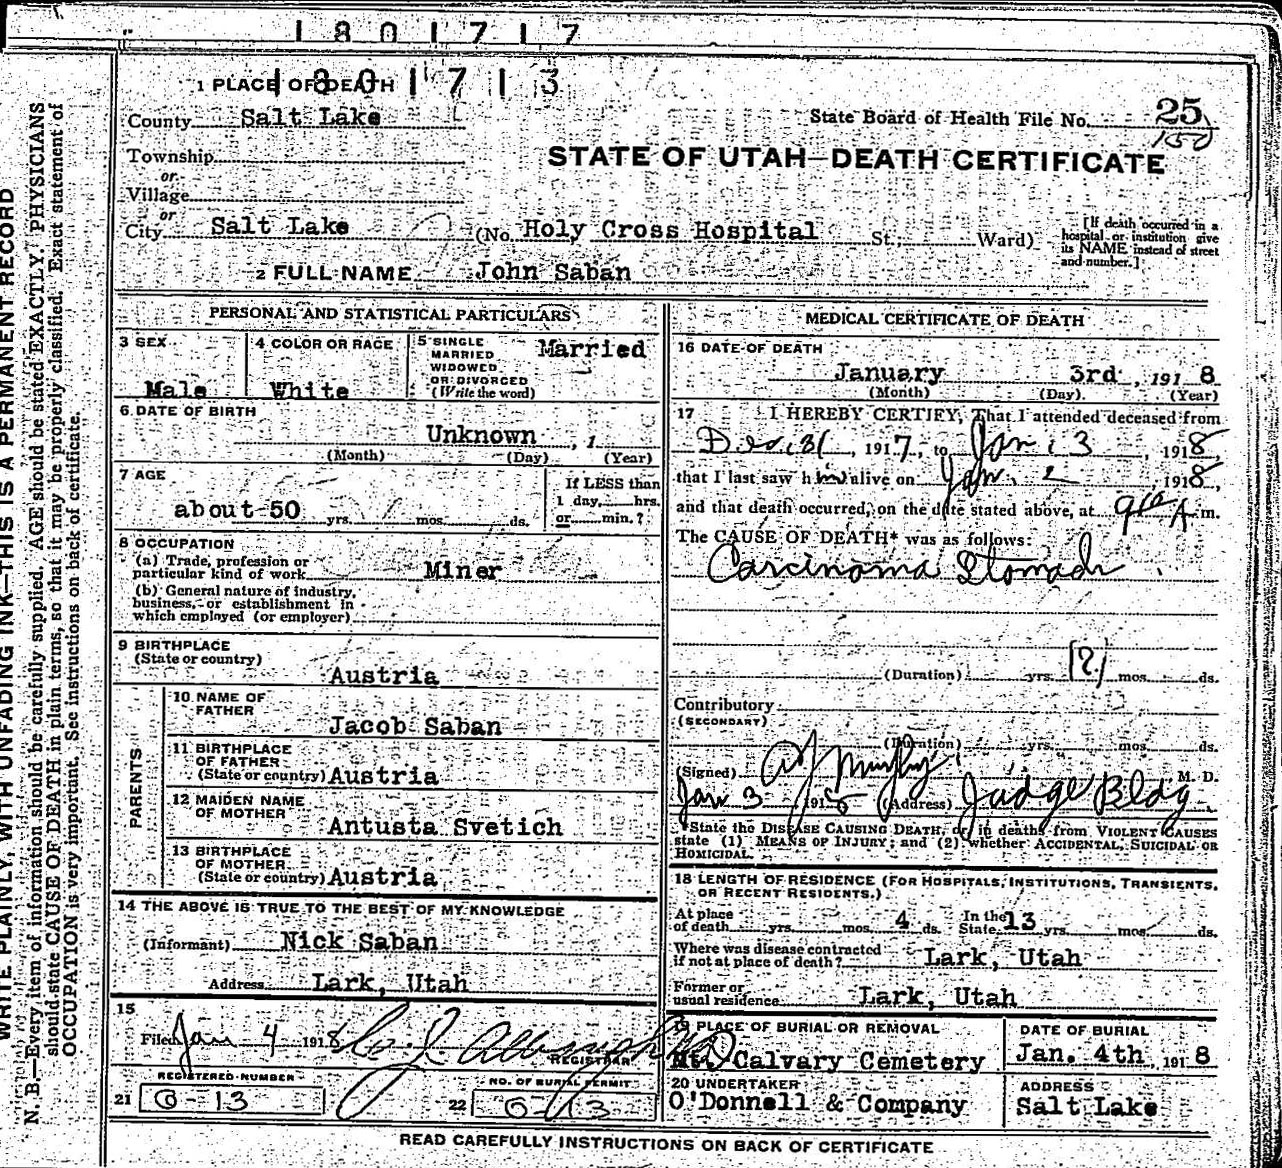 1801717
1801713
1 PLACE OF DEATH
County Salt Lake
State Board of Health File No. 25
150
Township
or
Village
or
City Salt Lake (No. Holy Cross Hospital St., Ward)
[If death occurred in a hospital or institution give its NAME instead of street and number.]
STATE OF UTAH—DEATH CERTIFICATE
2 FULL NAME John Saban
PERSONAL AND STATISTICAL PARTICULARS
3 SEX Male
4 COLOR OR RACE White
5 SINGLE MARRIED WIDOWED OR DIVORCED (Write the word) Married
6 DATE OF BIRTH
Unknown , 1
(Month) (Day) (Year)
7 AGE
about 50 yrs. mos. ds.
If LESS than
1 day, hrs.
or min.?
8 OCCUPATION
(a) Trade, profession or
particular kind of work Miner
(b) General nature of industry,
business, or establishment in
which employed (or employer)
9 BIRTHPLACE
(State or country)
Austria
PARENTS
10 NAME OF
FATHER
Jacob Saban
11 BIRTHPLACE
OF FATHER
(State or country) Austria
12 MAIDEN NAME
OF MOTHER
Antusta Svetich
13 BIRTHPLACE
OF MOTHER
(State or country) Austria
14 THE ABOVE IS TRUE TO THE BEST OF MY KNOWLEDGE
(Informant) Nick Saban
Address Lark, Utah
15
Filed Jan 4 1918
REGISTRAR
REGISTERED NUMBER
21 0-13
NO. OF BURIAL PERMIT
22 0-13
MEDICAL CERTIFICATE OF DEATH
16 DATE OF DEATH
January 3rd , 191 8
(Month) (Day) (Year)
17 I HEREBY CERTIFY, That I attended deceased from
Dec 31, 1917, to Jan 3, 1918,
that I last saw him alive on Jan. 2 1918,
and that death occurred, on the date stated above, at 9 A m.
The CAUSE OF DEATH* was as follows:
Carcinoma Stomach
(Duration) yrs. [?] mos. ds.
Contributory
(SECONDARY)
(Duration) yrs. mos. ds.
(Signed) Murphy M. D.
Jan 3 1918 (Address) Judge Bldg
*State the DISEASE CAUSING DEATH, or, in deaths from VIOLENT CAUSES
state (1) MEANS OF INJURY; and (2) whether ACCIDENTAL, SUICIDAL OR
HOMICIDAL.
18 LENGTH OF RESIDENCE (FOR HOSPITALS, INSTITUTIONS, TRANSIENTS,
OR RECENT RESIDENTS.)
At place
of death yrs. mos. 4 ds. In the State 13 yrs. mos. ds.
Where was disease contracted
if not at place of death? Lark, Utah
Former or
usual residence Lark, Utah
19 PLACE OF BURIAL OR REMOVAL
Mt. Calvary Cemetery
DATE OF BURIAL
Jan. 4th, 191 8
20 UNDERTAKER
O'Donnell & Company
ADDRESS
Salt Lake
READ CAREFULLY INSTRUCTIONS ON BACK OF CERTIFICATE
WRITE PLAINLY, WITH UNFADING INK—THIS IS A PERMANENT RECORD
N. B.—Every item of information should be carefully supplied. AGE should be stated EXACTLY. PHYSICIANS
should state CAUSE OF DEATH in plain terms, so that it may be properly classified. Exact statement of
OCCUPATION is very important. See instructions on back of certificate.